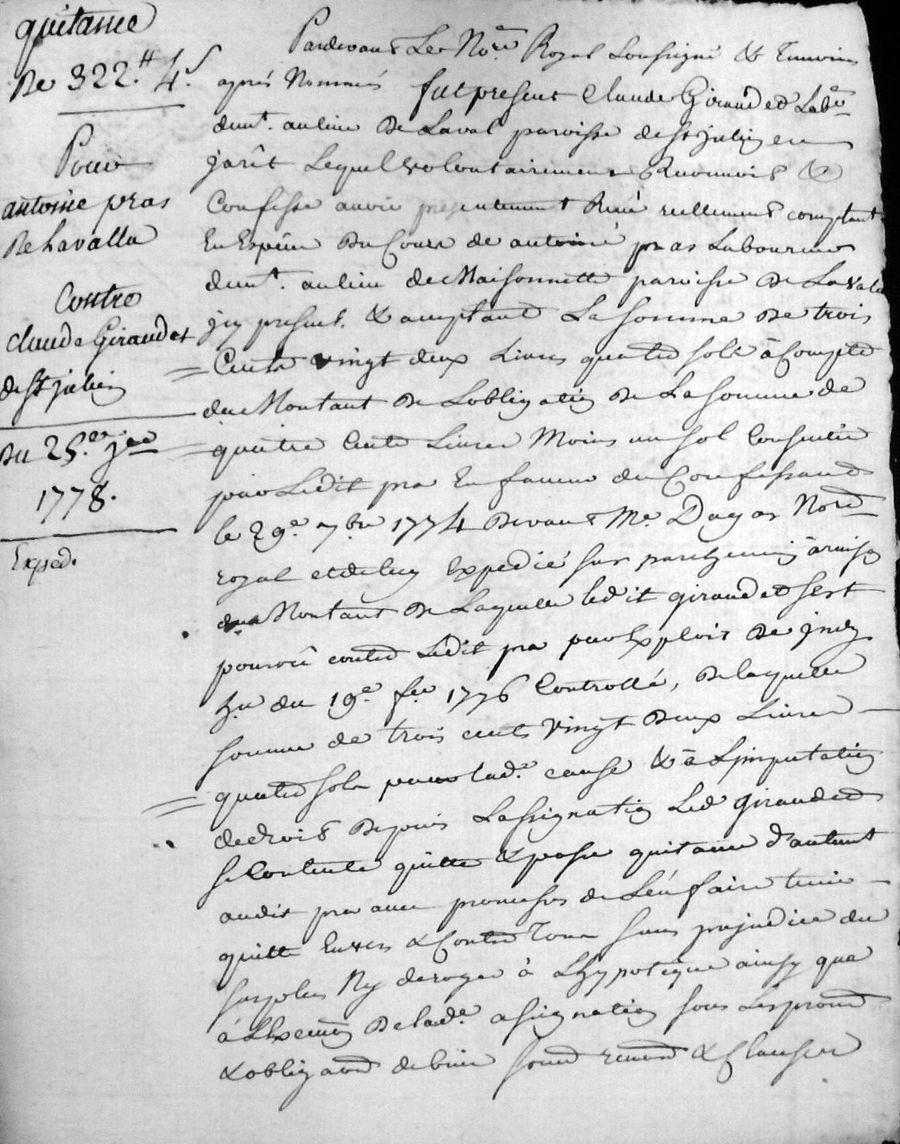 quitance
De 322.# 4.s
Pour
antoine pras
De Lavalla
Contre
Claude Giraudet
de St julien
Du 25.e jer
1778.
Exped.
Pardevant Le No.re Royal Soussigné & Temoins
après Nommés fut present Claude Giraudet Lab.r
dem.t au lieu De Laval paroisse de St julien en
jarêt Lequel volontairement Reconnoit &
Confesse avoir presentement Reçu reellement comptant
En Espece Du Cours de antoine pras Laboureur
dem.t au lieu de Maisonnette paroisse De Lavala
jcy present & acceptant La somme De trois
Cents vingt deux Livres quatre sols à Compte
du Montant De Lobligation De La somme de
quatre Cents Livres Moins un sol Consentie
par Ledit pra En faveur du Confessant
le 29.e 7.bre 1774 Devant M.e Dagas Nore
royal et de luy Expedié sur parchemin à raison
du Montant De Laquelle ledit giraudet sest
pourvû contre Ledit pra par Exploit De
du 19.e fer 1776 Controllé, De laquelle
somme de trois cents vingt Deux Livres
quatre sols pour lad.e cause & à Limputation
de droit Depuis Lassignation Led giraudet
se Contente quitte & passe quitance d'autant
audit pra avec promesses de Len faire tenir
quitte Envers & Contre Tous sans prejudice du
surplus Ny deroger à Lhypoteque ainsy que
à Lad.e assignation sous Les prom
& obligaons de biens soum renon & Clauses